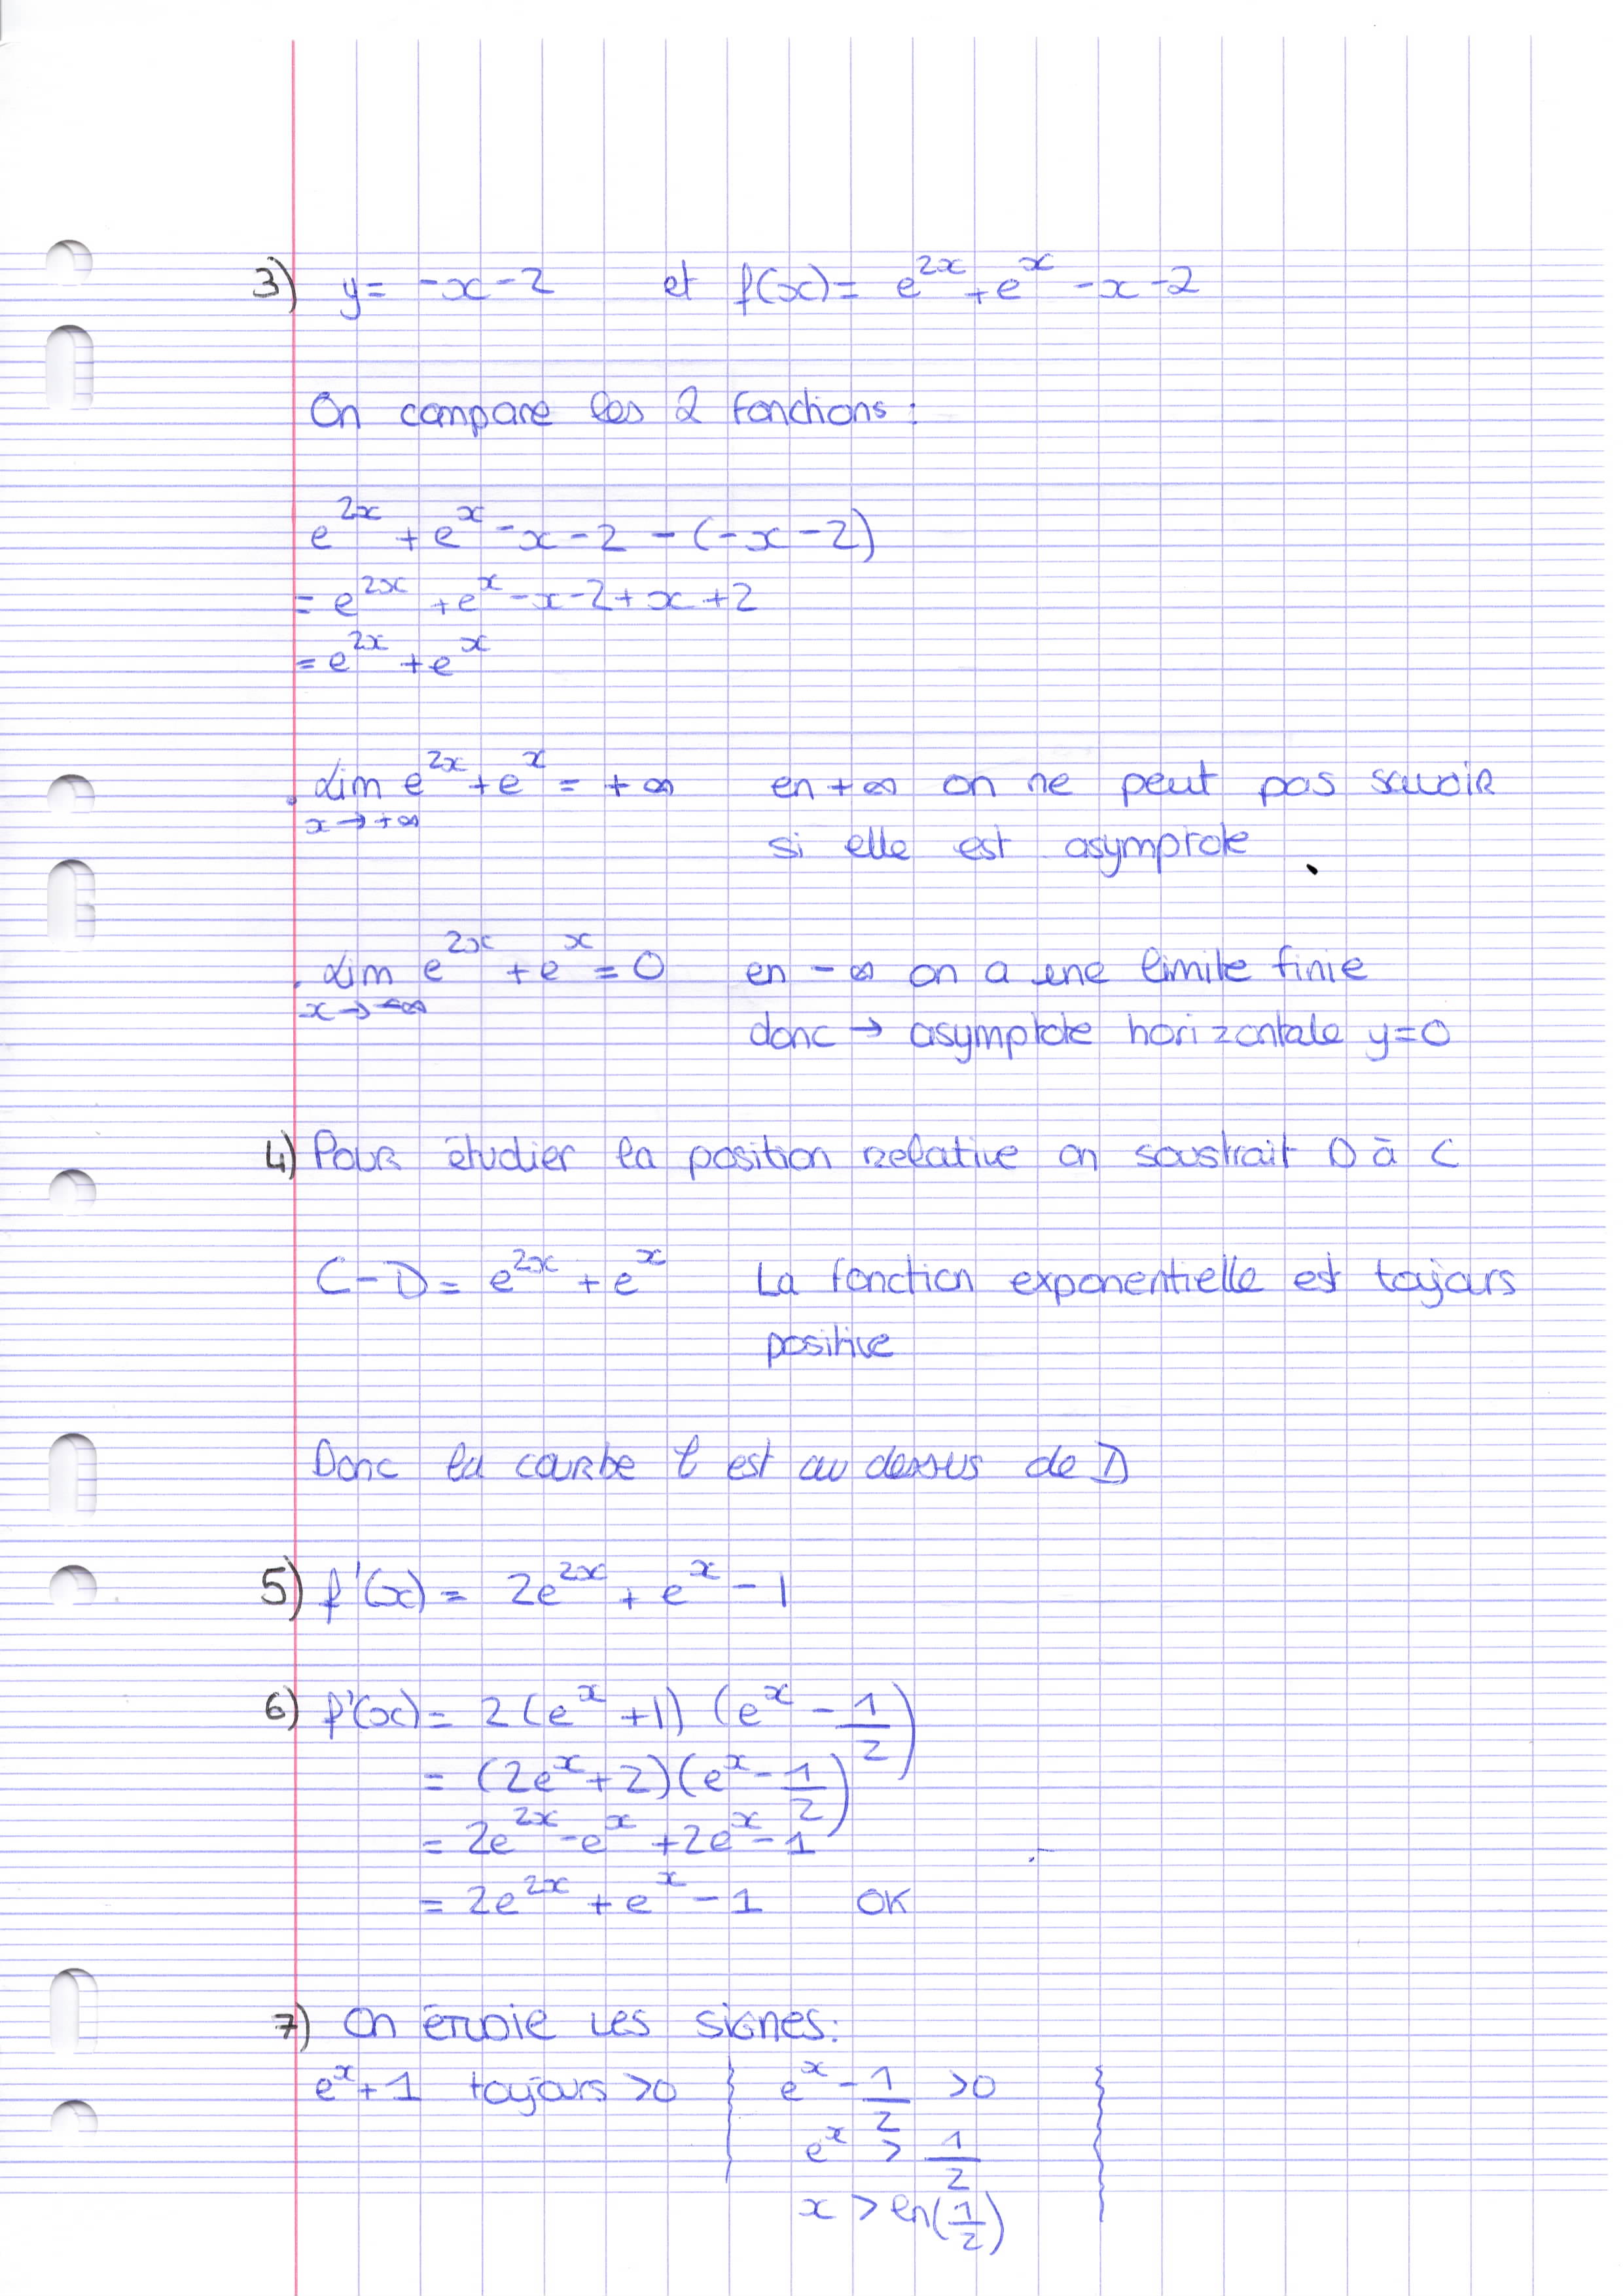 3) y = -x-2 et f(x) = e^{2x} + e^x - x - 2
On compare les 2 fonctions :
e^{2x} + e^x - x - 2 - (-x - 2)
= e^{2x} + e^x - x - 2 + x + 2
= e^{2x} + e^x
. Lim e^{2x} + e^x = +∞ en +∞ on ne peut pas savoir
x→+∞ si elle est asymptote
. Lim e^{2x} + e^x = 0 en -∞ on a une limite finie
x→-∞ donc → asymptote horizontale y=0
4) Pour étudier la position relative on soustrait D à C
C-D = e^{2x} + e^x La fonction exponentielle est toujours
positive
Donc la courbe C est au dessus de D
5) f'(x) = 2e^{2x} + e^x - 1
6) f'(x) = 2(e^x + 1) (e^x - 1/2)
= (2e^x + 2)(e^x - 1/2)
= 2e^{2x} - e^x + 2e^x - 1
= 2e^{2x} + e^x - 1 OK
7) On étudie les signes :
e^x + 1 toujours >0 e^x - 1/2 >0
e^x > 1/2
x > ln(1/2)